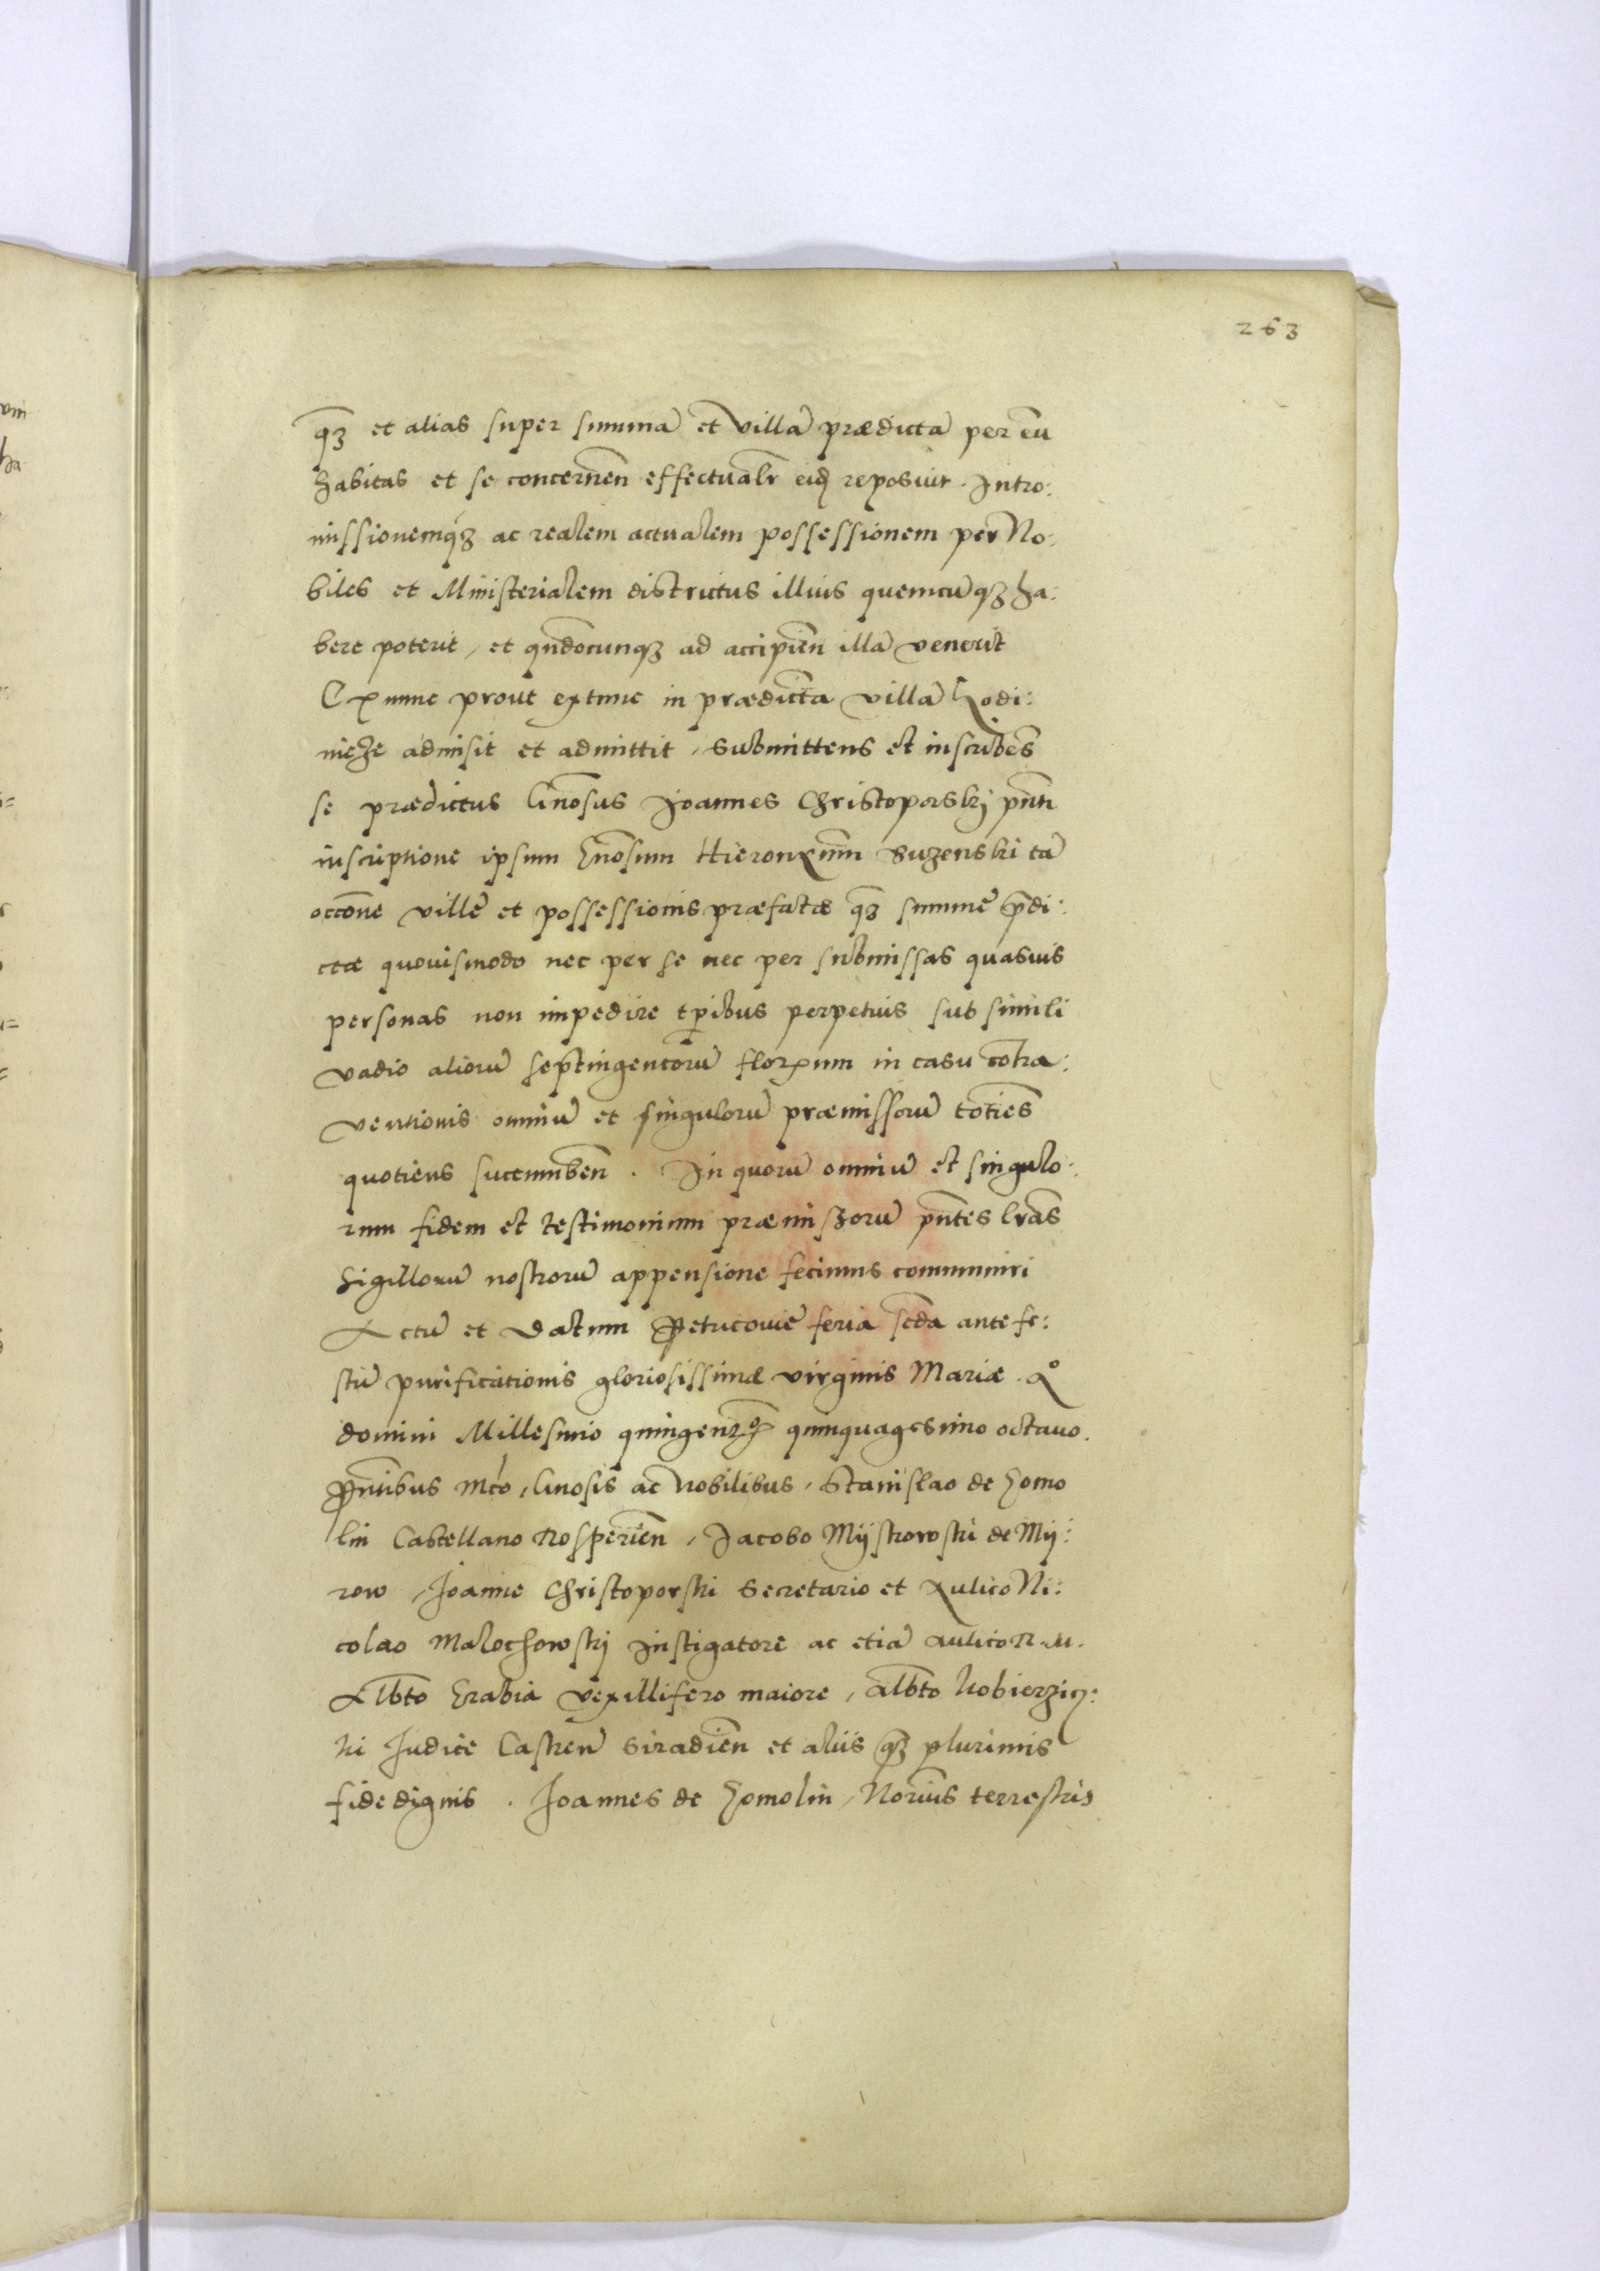 263
qʒ et alias super summā et villā prædictā per eū
habitas et se concernēn effectualr̄ eidē reposuit. Intro:
missionemqʒ ac realem actualem possessionem per No:
biles et Ministerialem districtus illius quemcūqʒ ha:
bere poterit, et qn̄documqʒ ad accipiēn illā venerit
Ex nunc prout ex tunc in prædictā villā
admisit et admittit, submittens et inscribēs
se prædictus Gn̄osus Joannes Christoporskj pn̄ti
inscriptione ipsum Gn̄osum Hieronymū Suzenski tā
occōne villę et possessionis præfatæ qʒ summę p̄di:
ctæ quovismodo nec per se nec per submissas quasvis
personas non impedire tp̄ribus perpetuis sub simili
vadio aliorū septingentorū florenum in casu cōtra:
ventionis omniū et singulorū præmissorū totiēs
quotiens succumbēn. In quorū omniū et singulo:
rum fidem et testimonium præmissorū pn̄tes lr̄as
Sigillorū nostrorū appensione fecimus communiri
Actū et datum Petricovię feria scd̄a ante fe:
stū purificationis gloriosissimæ virginis Mariæ. Aº
domini Millesimo quingentº quinquagesimo octavo.
Pn̄tibus Mc̄o, Gn̄osis ac Nobilibus, Stanislao de Homo
lin Castellano Rosperiēn, Jacobo Mÿskowski de Mÿ:
row, Joanne Christoporski Secretario et Aulico Ni:
colao Malochowskj Instigatore ac etiā aulico R. M.
Albt̄o Grabia vexillifero maiore, Albt̄o Kobierzicʒ:
ki Judice Castren̄ Siradiēn et aliis qʒ plurimis
fidedignis. Joannes de Homolin, Notr̄ius terrestris